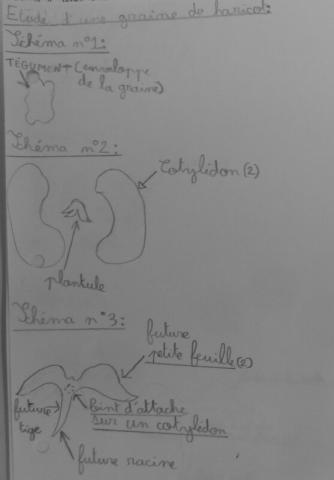 Etude d'une graine de haricot:
Schéma n°1:
TÉGUMENT (enveloppe
de la graine)
Schéma n°2:
Cotylédon (2)
plantule
Schéma n°3:
future
petite feuille (2)
future
tige
Point d'attache
sur un cotylédon
future racine